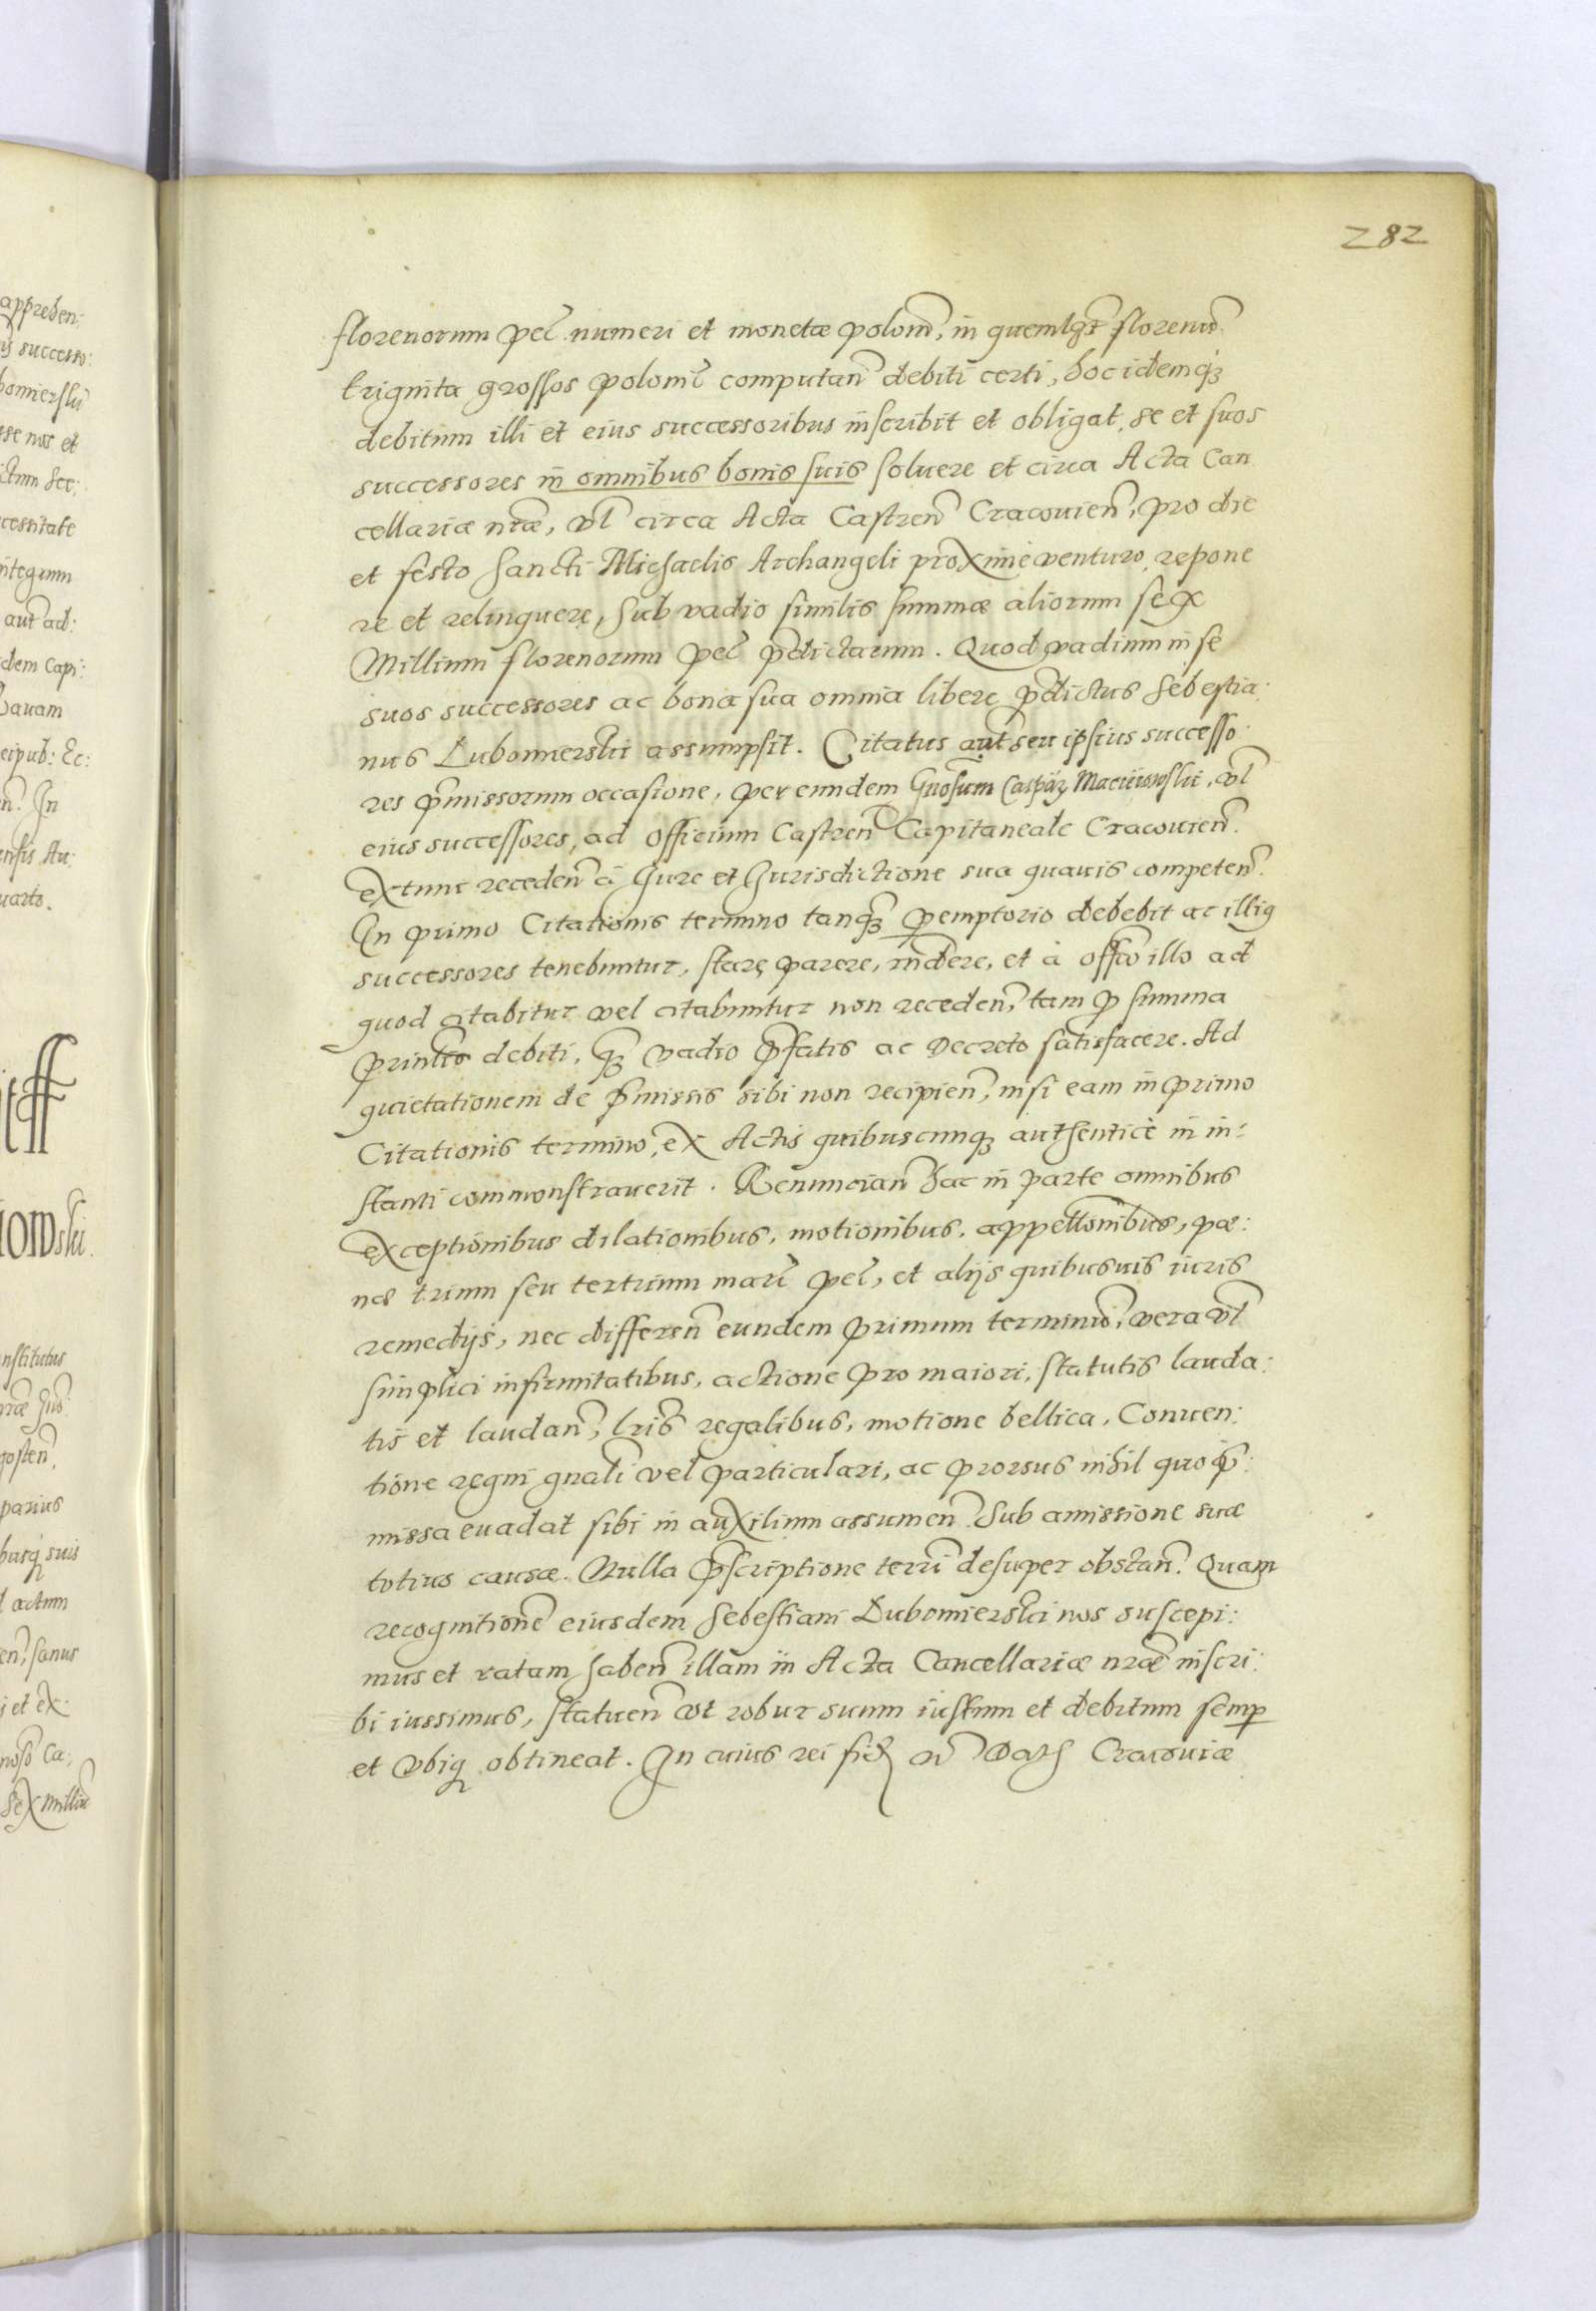 282
florenorum pecl numeri et monetæ polonl, in quemlqt florenũ
triginta grossos polonl computan debiti certi, hoc idemq;
debitum illi et eius successoribus inscribit et obligat se et suos
successores in omnibus bonis suis soluere et circa Acta Can
cellariæ nræ, vl circa Acta Castren Cracouien, pro die
et festo Sancti Michaelis Archangeli proxime venturo, repone
re et relinquere, sub vadio similis summæ aliorum sex
Millium florenorum pecl pdictarum. Quod vadium in se
suos successores ac bona sua omnia libere pdictus Sebestia:
nus Lubomierski assumpsit. Citatus aut seu ipsius successo:
res pmissorum occasione, per eundem Gnosum Caspar Macieiowski, vl
eius successores, ad officium Castren Capitaneale Cracouien.
extunc receden à Jure et Jurisdictione sua quauis competen.
In primo Citationis termino tanq; peremptorio debebit ac illiq
successores tenebuntur, stare parere, rñdere, et à offico illo ad
quod citabitur vel citabuntur non receden, tam p summa
prinlis debiti, q; vadio pfatis ac Decreto satisfacere. Ad
quietationem de pmissis sibi non recipien, nisi eam in primo
Citationis termino, ex Actis quibuscunq; authenticè in in:
stanti commonstrauerit. Renuncian hac in parte omnibus
exceptionibus dilationibus, motionibus, appellonibus, pæ:
næ trium seu tertium marl pecl, et alijs quibusuis iuris
remedijs, nec differen eundem primum terminũ, vera vl
simplici infirmitatibus, actione pro maiori, statutis lauda:
tis et laudan, lris regalibus, motione bellica, Conuen:
tione regni gnali vel particulari, ac prorsus nihil quo p:
missa euadat sibi in auxilium assumen. Sub amissione suæ
totius causæ. Nulla pscriptione terri desuper obstan. Quam
recognitionẽ eiusdem Sebestiani Lubomierski nos suscepi:
mus et ratam haben illam in Acta Cancellariæ nræ inscri:
bi iussimus, statuen vt robur suum iustum et debitum semp
et vbiq obtineat. In cuius rei fid Dath Cracouiæ